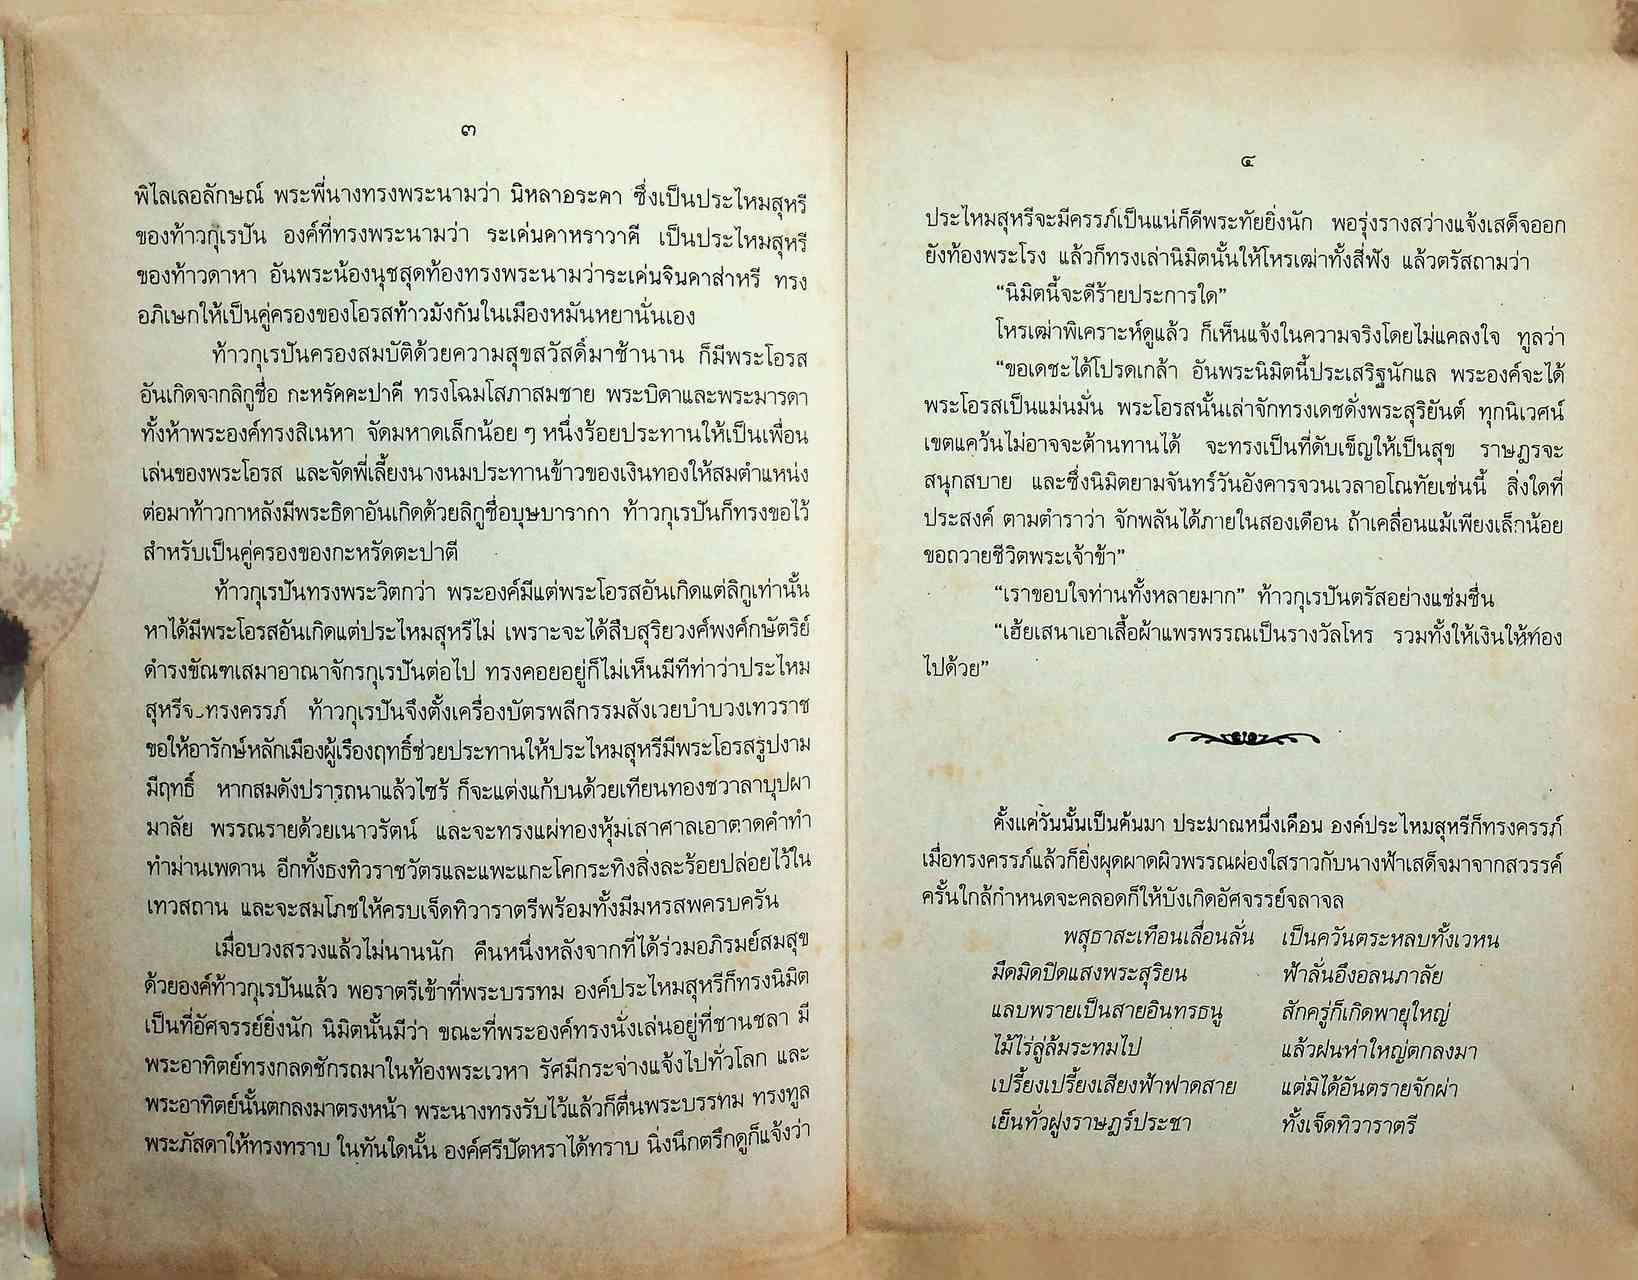 ๓
พิไลเลอลักษณ์ พระพี่นางทรงพระนามว่า นิหลาอระตา ซึ่งเป็นประไหมสุหรี
ของท้าวกุเรปัน องค์ที่ทรงพระนามว่า ระเด่นดาหราวาตี เป็นประไหมสุหรี
ของท้าวดาหา อันพระน้องนุชสุดท้องทรงพระนามว่าระเด่นจินดาส่าหรี ทรง
อภิเษกให้เป็นคู่ครองของโอรสท้าวมังกันในเมืองหมันหยานั่นเอง
ท้าวกุเรปันครองสมบัติด้วยความสุขสวัสดิ์มาช้านาน ก็มีพระโอรส
อันเกิดจากลิกูชื่อ กะหรัดตะปาตี ทรงโฉมโสภาสมชาย พระบิดาและพระมารดา
ทั้งห้าพระองค์ทรงสิเนหา จัดมหาดเล็กน้อย ๆ หนึ่งร้อยประทานให้เป็นเพื่อน
เล่นของพระโอรส และจัดพี่เลี้ยงนางนมประทานข้าวของเงินทองให้สมตำแหน่ง
ต่อมาท้าวกาหลังมีพระธิดาอันเกิดด้วยลิกูชื่อบุษบารากา ท้าวกุเรปันก็ทรงขอไว้
สำหรับเป็นคู่ครองของกะหรัดตะปาตี
ท้าวกุเรปันทรงพระวิตกว่า พระองค์มีแต่พระโอรสอันเกิดแต่ลิกูเท่านั้น
หาได้มีพระโอรสอันเกิดแต่ประไหมสุหรีไม่ เพราะจะได้สืบสุริยวงศ์พงศ์กษัตริย์
ดำรงขัณฑเสมาอาณาจักรกุเรปันต่อไป ทรงคอยอยู่ก็ไม่เห็นมีทีท่าว่าประไหม
สุหรีจะทรงครรภ์ ท้าวกุเรปันจึงตั้งเครื่องบัตรพลีกรรมสังเวยบำบวงเทวราช
ขอให้อารักษ์หลักเมืองผู้เรืองฤทธิ์ช่วยประทานให้ประไหมสุหรีมีพระโอรสรูปงาม
มีฤทธิ์ หากสมดังปรารถนาแล้วไซร้ ก็จะแต่งแก้บนด้วยเทียนทองชวาลาบุปผา
มาลัย พรรณรายด้วยเนาวรัตน์ และจะทรงแผ่ทองหุ้มเสาศาลเอาตาดคำทำ
ทำม่านเพดาน อีกทั้งธงทิวราชวัตรและแพะแกะโคกระทิงสิ่งละร้อยปล่อยไว้ใน
เทวสถาน และจะสมโภชให้ครบเจ็ดทิวาราตรีพร้อมทั้งมีมหรสพครบครัน
เมื่อบวงสรวงแล้วไม่นานนัก คืนหนึ่งหลังจากที่ได้ร่วมอภิรมย์สมสุข
ด้วยองค์ท้าวกุเรปันแล้ว พอราตรีเข้าที่พระบรรทม องค์ประไหมสุหรีก็ทรงนิมิต
เป็นที่อัศจรรย์ยิ่งนัก นิมิตนั้นมีว่า ขณะที่พระองค์ทรงนั่งเล่นอยู่ที่ชานชลา มี
พระอาทิตย์ทรงกลดชักรถมาในท้องพระเวหา รัศมีกระจ่างแจ้งไปทั่วโลก และ
พระอาทิตย์นั้นตกลงมาตรงหน้า พระนางทรงรับไว้แล้วก็ตื่นพระบรรทม ทรงทูล
พระภัสดาให้ทรงทราบ ในทันใดนั้น องค์ศรีปัตหราได้ทราบ นิ่งนึกตรึกดูก็แจ้งว่า
๔
ประไหมสุหรีจะมีครรภ์เป็นแน่ก็ดีพระทัยยิ่งนัก พอรุ่งรางสว่างแจ้งเสด็จออก
ยังท้องพระโรง แล้วก็ทรงเล่านิมิตนั้นให้โหรเฒ่าทั้งสี่ฟัง แล้วตรัสถามว่า
“นิมิตนี้จะดีร้ายประการใด”
โหรเฒ่าพิเคราะห์ดูแล้ว ก็เห็นแจ้งในความจริงโดยไม่แคลงใจ ทูลว่า
“ขอเดชะได้โปรดเกล้า อันพระนิมิตนี้ประเสริฐนักแล พระองค์จะได้
พระโอรสเป็นแม่นมั่น พระโอรสนั้นเล่าจักทรงเดชดั่งพระสุริยันต์ ทุกนิเวศน์
เขตแคว้นไม่อาจจะต้านทานได้ จะทรงเป็นที่ดับเข็ญให้เป็นสุข ราษฎรจะ
สนุกสบาย และซึ่งนิมิตยามจันทร์วันอังคารจวนเวลาอโณทัยเช่นนี้ สิ่งใดที่
ประสงค์ ตามตำราว่า จักพลันได้ภายในสองเดือน ถ้าเคลื่อนแม้เพียงเล็กน้อย
ขอถวายชีวิตพระเจ้าข้า”
“เราขอบใจท่านทั้งหลายมาก” ท้าวกุเรปันตรัสอย่างแช่มชื่น
“เฮ้ยเสนาเอาเสื้อผ้าแพรพรรณเป็นรางวัลโหร รวมทั้งให้เงินให้ทอง
ไปด้วย”
ตั้งแต่วันนั้นเป็นต้นมา ประมาณหนึ่งเดือน องค์ประไหมสุหรีก็ทรงครรภ์
เมื่อทรงครรภ์แล้วก็ยิ่งผุดผาดผิวพรรณผ่องใสราวกับนางฟ้าเสด็จมาจากสวรรค์
ครั้นใกล้กำหนดจะคลอดก็ให้บังเกิดอัศจรรย์จลาจล
พสุธาสะเทือนเลื่อนลั่น เป็นควันตระหลบทั้งเวหน
มืดมิดปิดแสงพระสุริยน ฟ้าลั่นอึงอลนภาลัย
แลบพรายเป็นสายอินทรธนู สักครู่ก็เกิดพายุใหญ่
ไม้ไร่ลู่ล้มระทมไป แล้วฝนห่าใหญ่ตกลงมา
เปรี้ยงเปรี้ยงเสียงฟ้าฟาดสาย แต่มิได้อันตรายจักผ่า
เย็นทั่วฝูงราษฎร์ประชา ทั้งเจ็ดทิวาราตรี